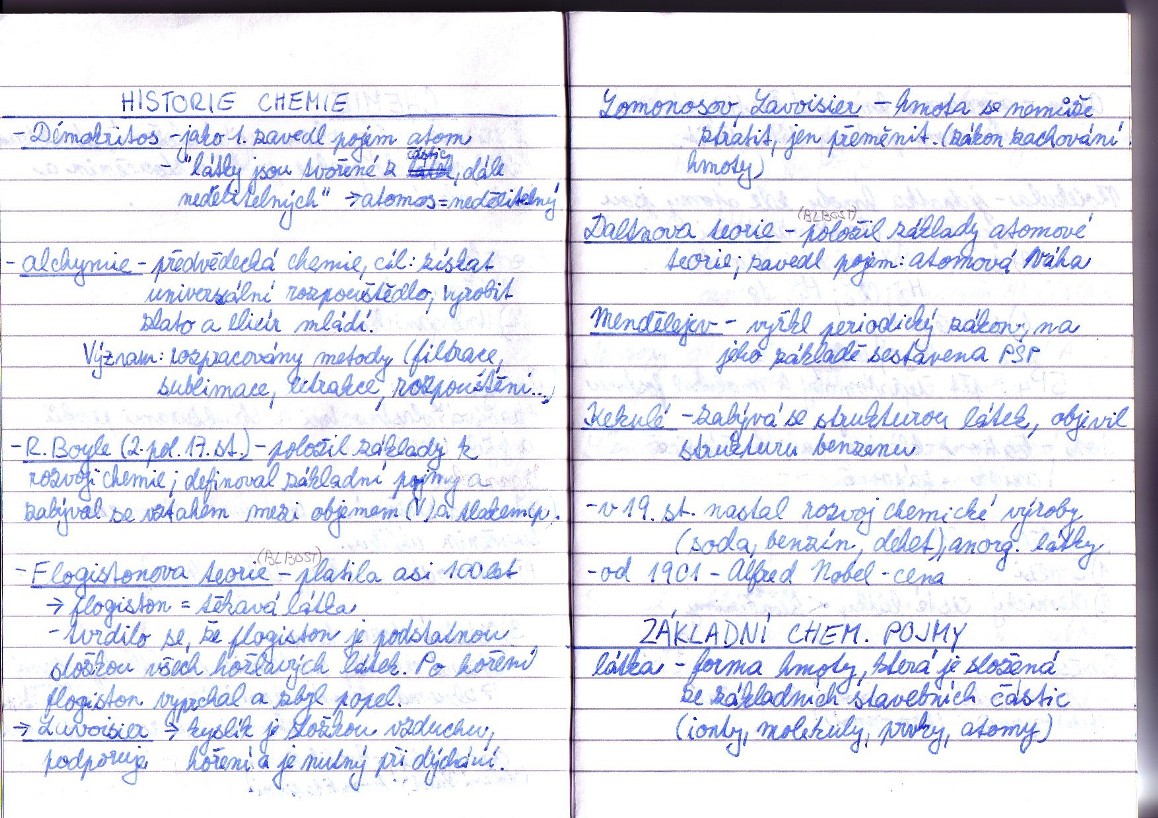 HISTORIE CHEMIE
- Démokritos - jako 1. zavedl pojem atom
- "látky jsou tvořené z částic, dále
nedělitelných" → atomos = nedělitelný
- alchymie - předvědecká chemie, cíl: získat
univerzální rozpouštědlo, vyrobit
zlato a elixír mládí.
Význam: rozpracovány metody (filtrace,
sublimace, extrakce, rozpouštění...)
- R. Boyle (2. pol. 17. st.) - položil základy k
rozvoji chemie; definoval základní pojmy a
zabýval se vztahem mezi objemem (V) a tlakem p.
(BLBOST)
- Flogistonova teorie - platila asi 100 let
→ flogiston = těkavá látka
- tvrdilo se, že flogiston je podstatnou
složkou všech hořlavých látek. Po hoření
flogiston vyprchal a zbyl popel.
→ Lavoisier → kyslík je složkou vzduchu,
podporuje hoření a je nutný při dýchání.
Lomonosov, Lavoisier - hmota se nemůže
ztratit, jen přeměnit. (zákon zachování
hmoty)
(BLBOST)
Daltnova teorie - položil základy atomové
teorie; zavedl pojem: atomová váha
Mendělejev - vyřkl periodický zákon, na
jeho základě sestavena PSP
Kekulé - zabývá se strukturou látek, objevil
strukturu benzenu
- v 19. st. nastal rozvoj chemické výroby
(soda, benzín, dehet), anorg. látky
- od 1901 - Alfred Nobel - cena
ZÁKLADNÍ CHEM. POJMY
látka - forma hmoty, která je složená
ze základních stavebních částic
(ionty, molekuly, prvky, atomy)